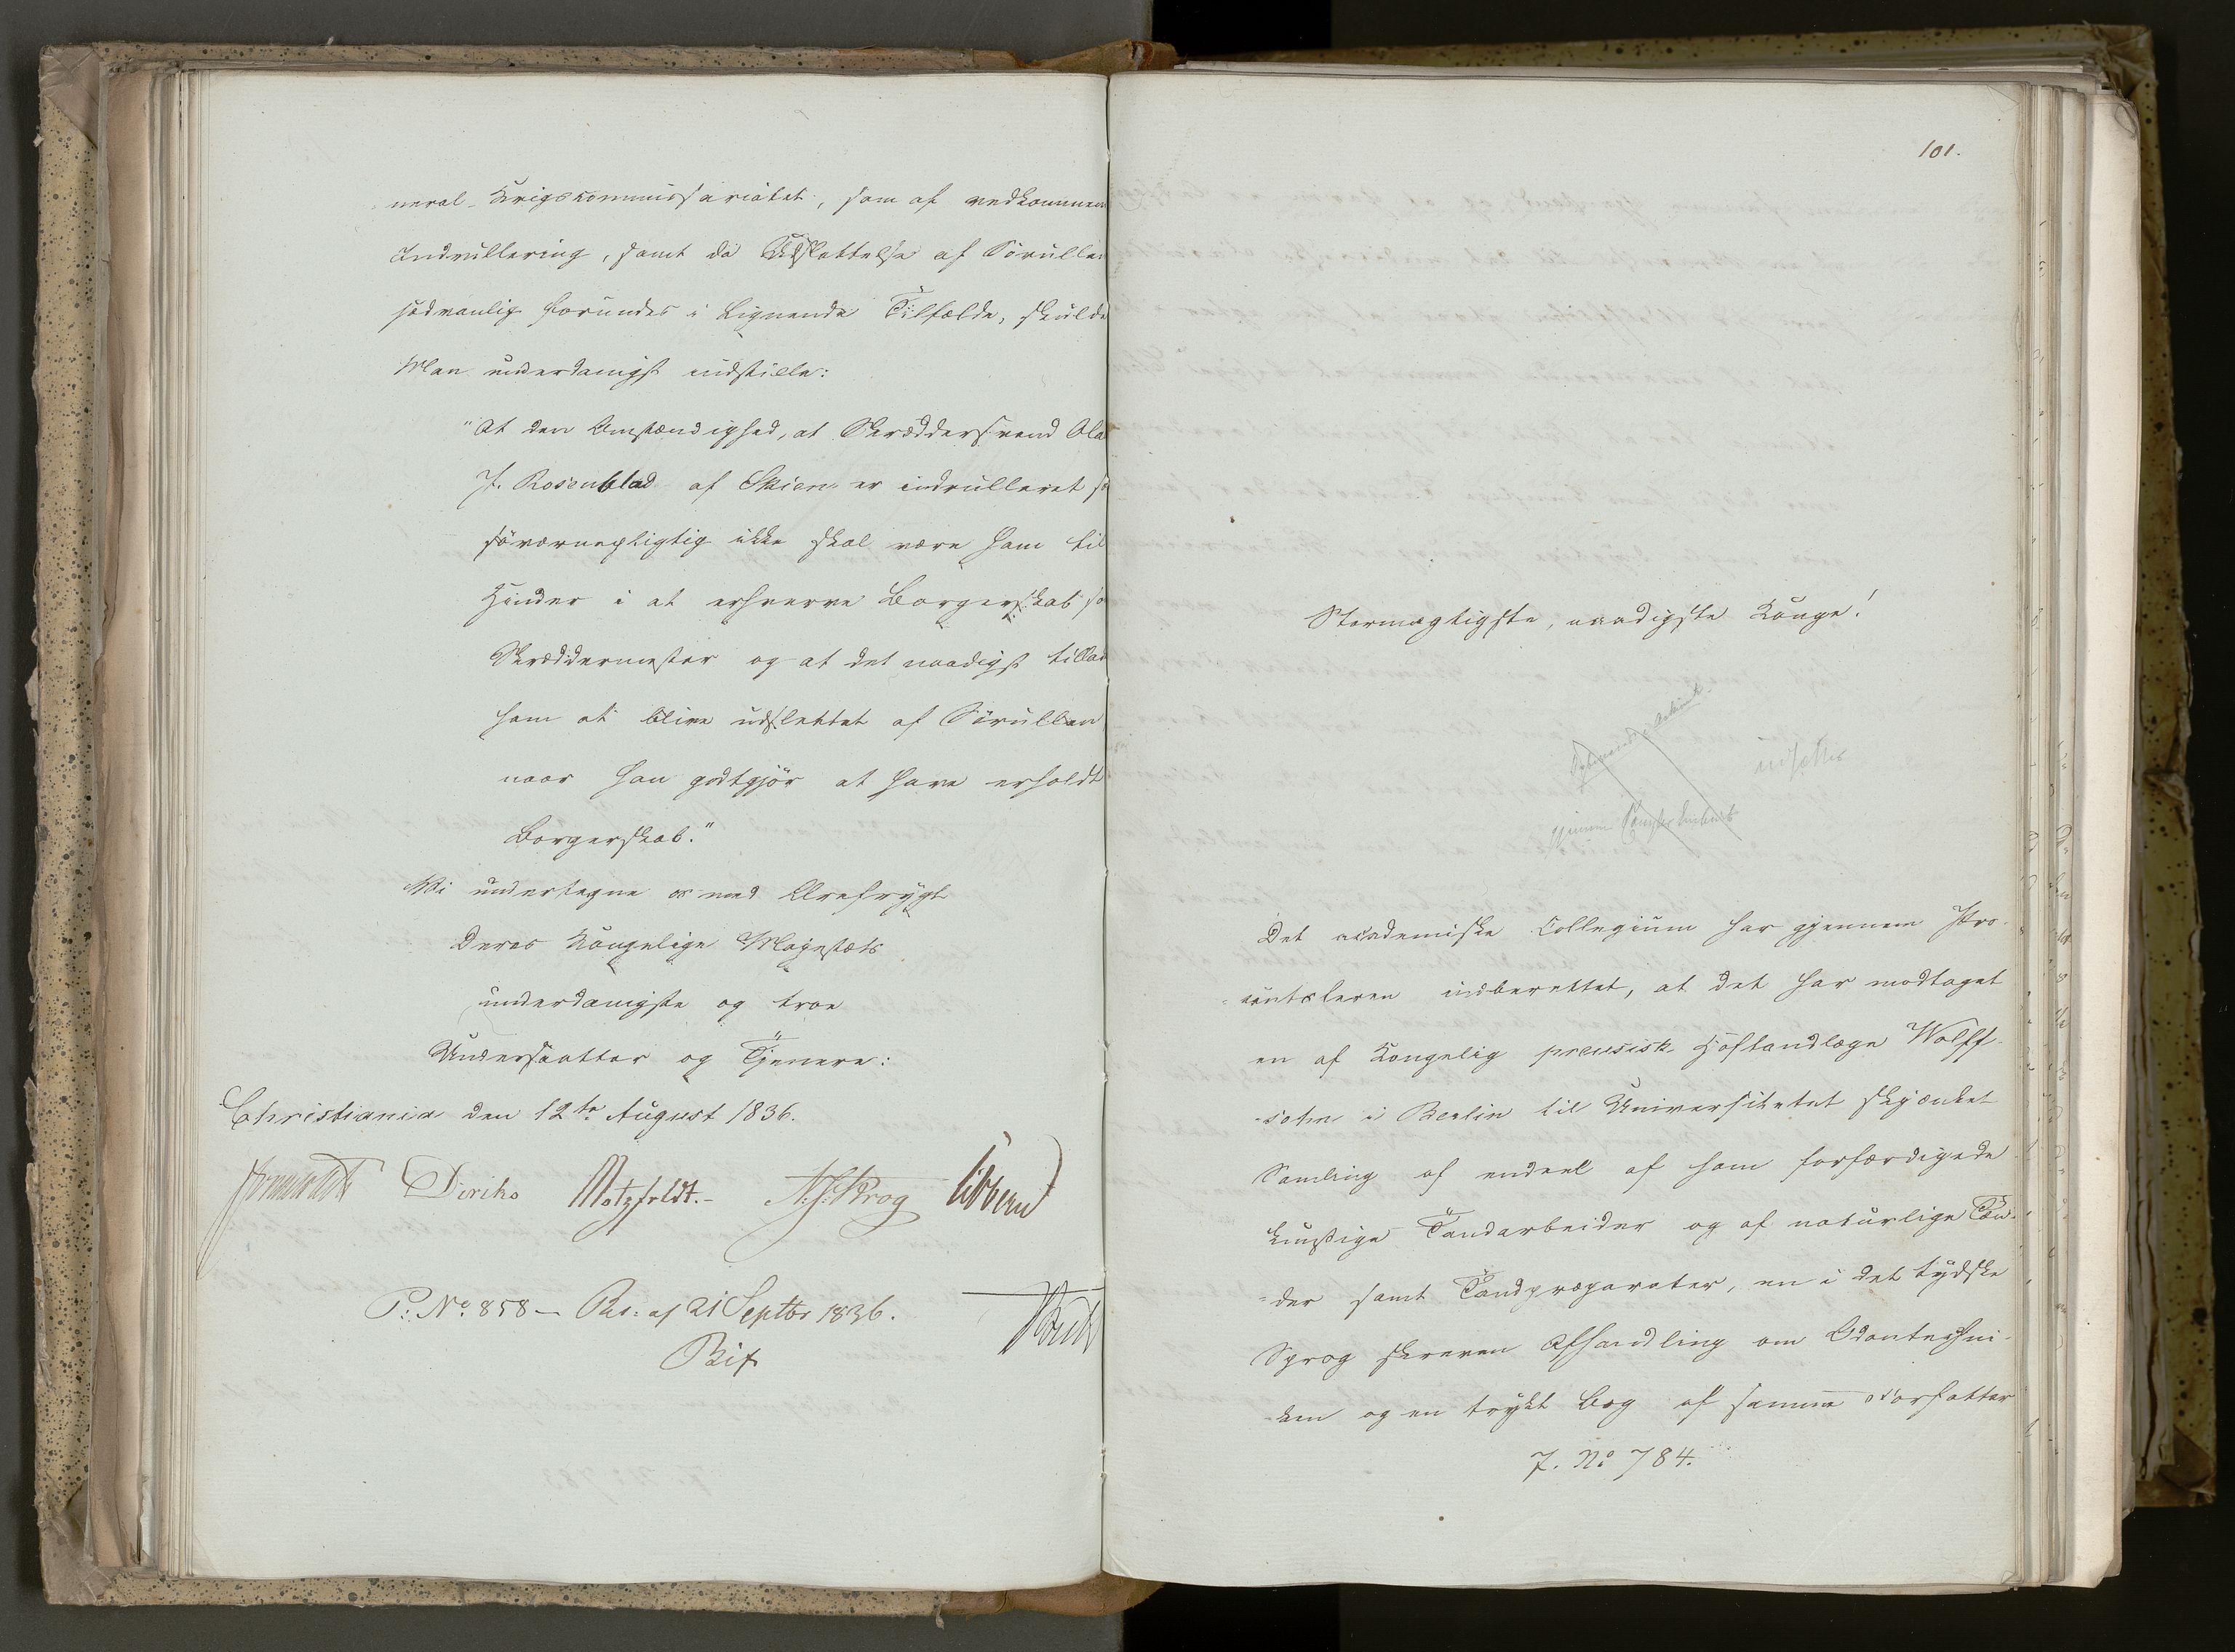 neral-Krigscommissariatet, som af vedkommen
Indrullering, samt da Udslettelse af Sörullen
sædvanlig forundes i Lignende Tilfælde, skulde
Man underdanigst indstille:
"At den Omstændighed, at Skræddersvend Ola
J. Rosenblad af Skien er indrulleret so
söværnepligtig ikke skal være ham til
Hinder i at erhverve Borgerskab so
Skræddermester og at det naadigst tillad
ham at blive udslettet af Sörullen
naar han godtgjör at have erholdt
Borgerskab."
Vi undertegne os med Ærefrygt
Deres Kongelige Majestæts
underdanigste og troe
Undersaatter og Tjenere:
Christiania den 12te August 1836.
Diriks Motzfeldt.- N. J. Krog Vibe
P: No. 858 - Res: af 21 Septbr 1836.
101.
Stormægtigste, naadigste Konge!
udsættes
Det academiske Collegium har gjennem Pro-
cantsleren indberettet, at det har modtaget
en af Kongelig preusisk Hoftandlæge Wolff-
-sohn i Berlin til Universitetet skjænket
Samling af endeel af ham forfærdigede
kunstige Tandarbeider og af naturlige Tæn-
-der samt Tandpræparater, en i det tydske
Sprog skreven Afhandling om Odontechni-
-ken og en trykt Bog af samme Forfatter
J. No 784.